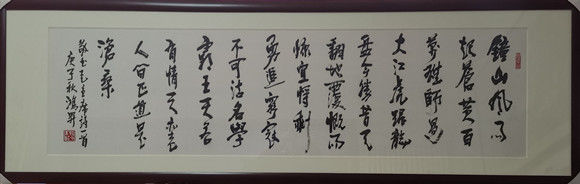 鐘山風雨
起蒼黄百
萬雄師過
大江虎踞龍
盤今勝昔天
翻地覆慨而
慷宜将剩
勇追窮寇
不可沽名學
霸王天若
有情天亦老
人间正道是
滄桑
敬书毛主席诗一首
庚子秋